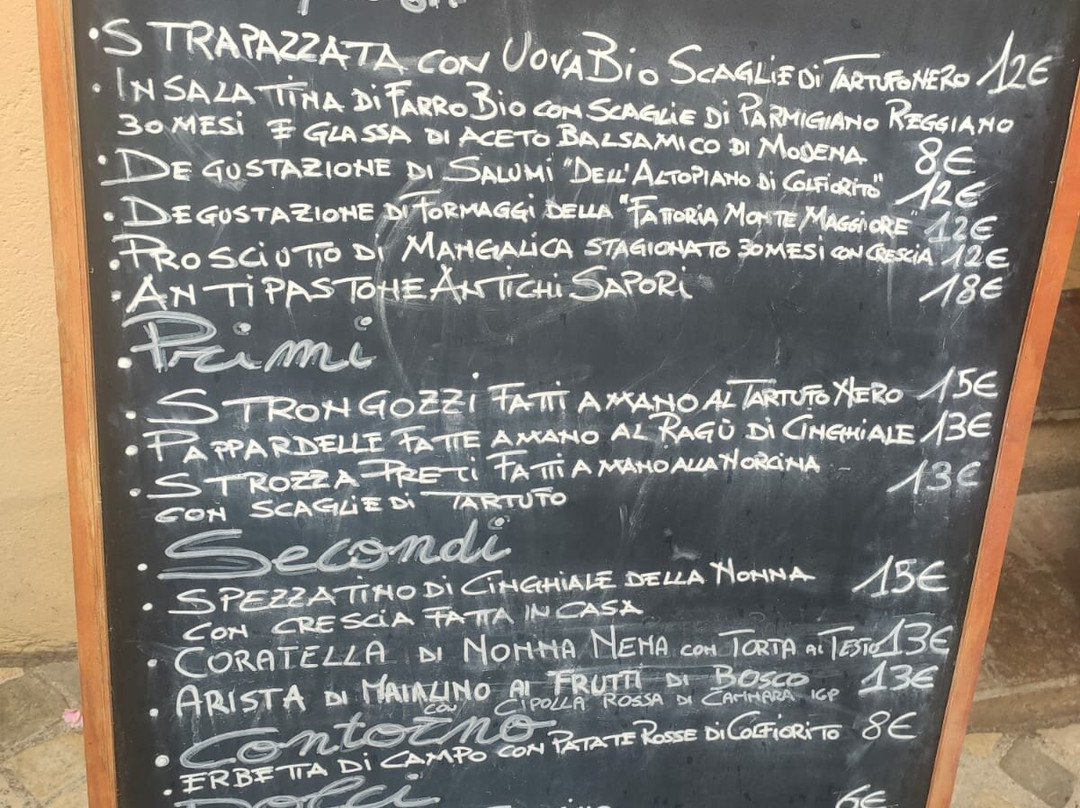 • STRAPAZZATA CON UOVA BIO SCAGLIE DI TARTUFO NERO 12€
• INSALATINA DI FARRO BIO CON SCAGLIE DI PARMIGIANO REGGIANO
30 MESI E GLASSA DI ACETO BALSAMICO DI MODENA 8€
• DEGUSTAZIONE DI SALUMI "DELL'ALTOPIANO DI COLFIORITO" 12€
• DEGUSTAZIONE DI FORMAGGI DELLA "FATTORIA MONTE MAGGIORE" 12€
• PROSCIUTTO DI MANGALICA STAGIONATO 30 MESI CON CRESCIA 12€
• ANTIPASTONE ANTICHI SAPORI 18€
• Primi
• STRONGOZZI FATTI A MANO AL TARTUFO NERO 15€
• PAPPARDELLE FATTE A MANO AL RAGÙ DI CINGHIALE 13€
• STROZZAPRETI FATTI A MANO ALLA NORCINA 13€
CON SCAGLIE DI TARTUFO
• Secondi
• SPEZZATINO DI CINGHIALE DELLA NONNA 15€
CON CRESCIA FATTA IN CASA
• CORATELLA DI NONNA NENA CON TORTA AL TESTO 13€
• ARISTA DI MAIALINO AI FRUTTI DI BOSCO 13€
CON CIPOLLA ROSSA DI CANNARA IGP
• Contorno
• ERBETTA DI CAMPO CON PATATE ROSSE DI COLFIORITO 8€
Dolci
6€